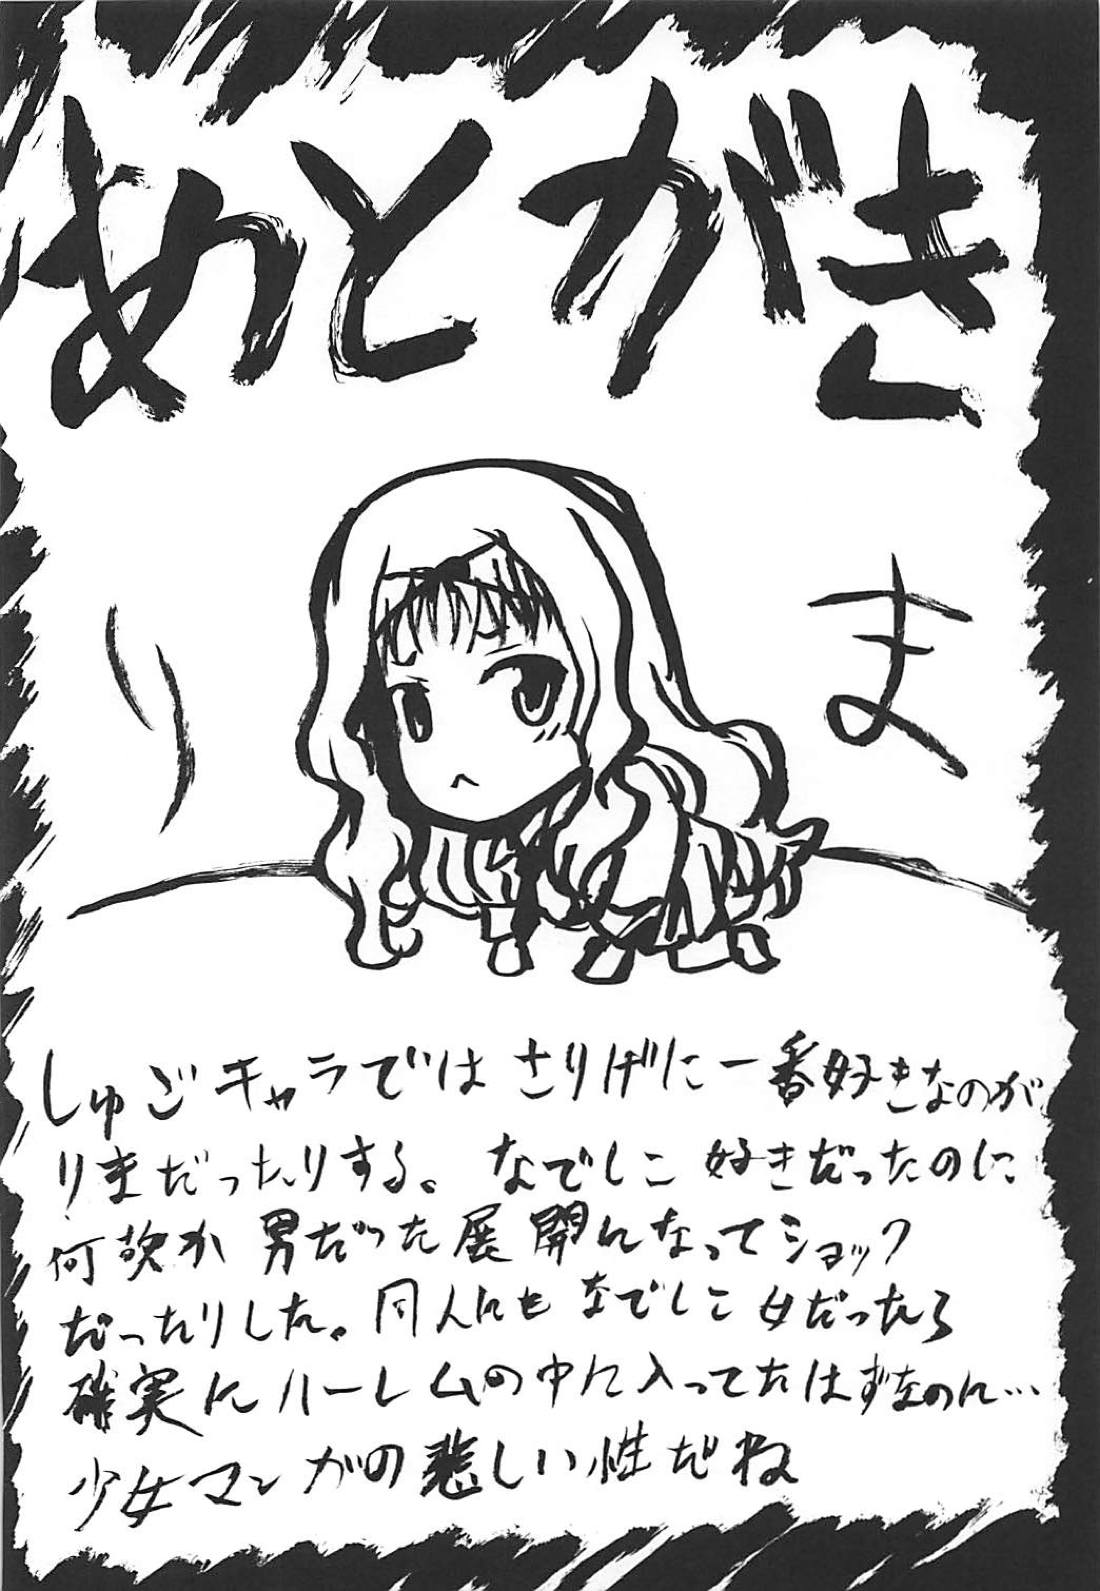 あとがき
りま
しゅごキャラでは さりげに一番好きなのが
りまだったりする。 なでしこ 好きだったのに
何故か 男だった展開になってショック
だったりした。同人にも なでしこ 女だったら
確実にハーレムの中に入ってたはずなのに…
少女マンガの悲しい性だね